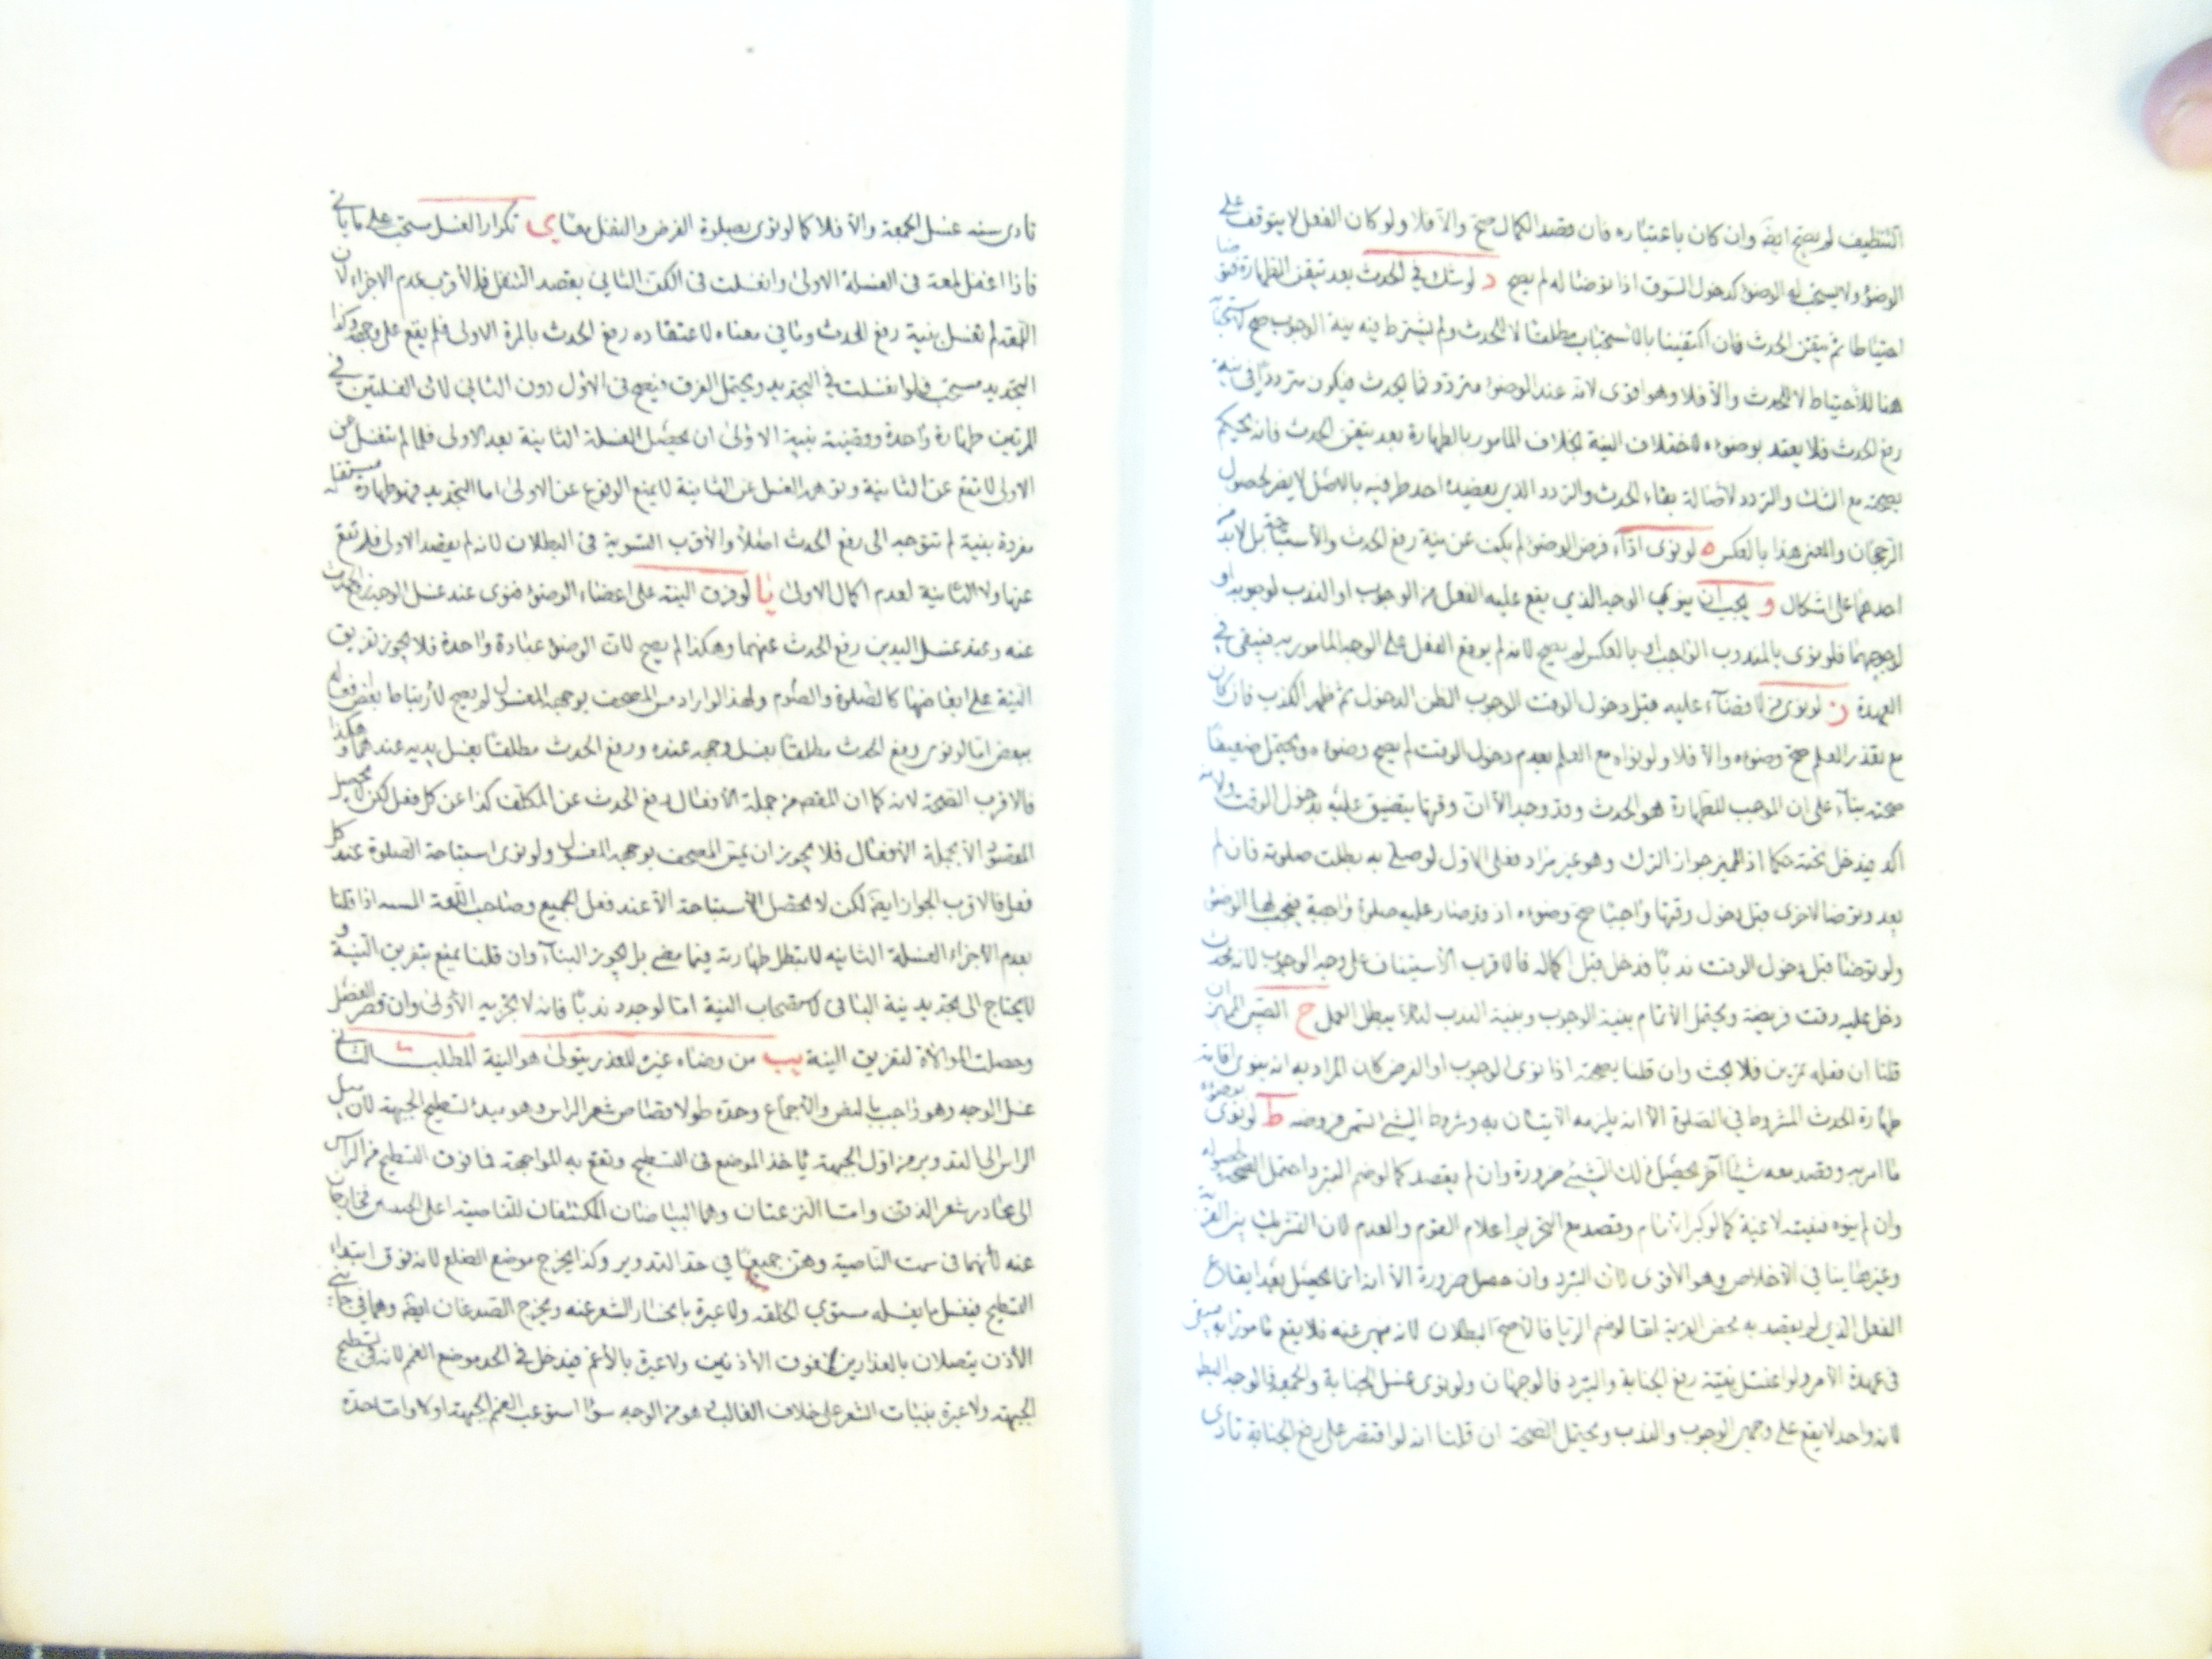 التنظيف لم يصح ايضا وان كان باعتباره فان قصد الكمال صح والا فلا ولو كان الفعل لا يتوقف على
الوضوء ولا يستحب له الوضوء كدخول السوق اذا توضا له لم يصح د لو شك في الحدث بعد تيقن الطهارة فتوضا
احتياطا ثم تيقن الحدث فان اكتفينا بالاستحباب مطلقا لا للحدث ولم نشترط فيه نية الوجوب صح
هنا للاحتياط لا للحدث والا فلا وهو اقوى لانه عند الوضوء متردد في الحدث فيكون مترددا في نية
رفع الحدث فلا يعتد بوضوءه لاختلاف النية بخلاف المامور بالطهارة بعد تيقن الحدث فانه يحكم
بصحته مع الشك والتردد لاصالة بقاء الحدث والتردد الذي يعضده احد طرفيه بالاصل لا يضر لحصول
الرجحان والمعنى هذا بالعكس ه لو نوى اداء فرض الوضوء لم يكف عن نية رفع الحدث والاستباحة بل لا بد من
احدهما على اشكال و يجب ان ينوي الوجه الذي يقع عليه الفعل من الوجوب او الندب لوجوبه او
لوجههما فلو نوى بالمندوب الواجب او بالعكس لم يصح لانه لم يوقع الفعل على الوجه المامور به فيبقى في
العهدة ز لو نوى من لا قضاء عليه قبل دخول الوقت الوجوب لظن الدخول ثم ظهر الكذب فان كان
مع تعذر العلم صح وضوءه والا فلا ولو نواه مع العلم بعدم دخول الوقت لم يصح وضوءه ويحتمل ضعيفا
صحته بناء على ان الموجب للطهارة هو الحدث وقد وجد الا ان وقتها يتضيق عليه بدخول الوقت ولانه
اكد فيدخل تحته حكما اذ المميز جواز الترك وهو غير مراد فعلى الاول لو صلى به بطلت صلوته فان لم
يعد وتوضا لاخرى قبل دخول وقتها واجبا صح وضوءه اذ قد صار عليه صلوة واجبة فيجب لها الوضوء
ولو توضا قبل دخول الوقت ندبا فدخل قبل اكماله فالاقرب الاستيناف على وجه الوجوب لانه محدث
دخل عليه وقت فريضة ويحتمل الاتمام بنية الوجوب وبنية الندب لئلا يبطل العمل ح الصبي المميز ان
قلنا ان فعله تمرين فلا بحث وان قلنا بصحته اذا نوى الوجوب او الفرض كان المراد به انه ينوي اقامة
طهارة الحدث المشروط في الصلوة الا انه يلزمه الاتيان به وشروط الشيء تسمى فروضه ط لو نوى بوضوءه
ما امر به وقصد معه شيئا اخر يحصل ذلك الشيء ضرورة وان لم يقصد كما لو ضم التبرد احتمل الصحة لحصوله
وان لم ينوه فنيته لاغية كما لو كبر الامام وقصد مع التحريم اعلام القوم والعدم لان التشريك بين القربة
وغيرها ينافي الاخلاص وهو الاقوى لان التبرد وان حصل ضرورة الا انه انما يحصل بعد ايقاع
الفعل الذي لم يقصد به محض القربة اما لو ضم الريا فالاصح البطلان لانه منهي عنه فلا يقع مامورا به فيبقى
في عهدة الامر ولو اغتسل بنية رفع الجنابة والتبرد فالوجهان ولو نوى غسل الجنابة والجمعة فالوجه البطلان
لانه واحد لا يقع على وجهي الوجوب والندب ويحتمل الصحة ان قلنا انه لو اقتصر على رفع الجنابة تادى
تادى سنة غسل الجمعة والا فلا كما لو نوى بصلوة الفرض والنفل معا ي تكرار الغسل مستحب على ما ياتي
فاذا اغفل لمعة في الغسلة الاولى وانغسلت في الكف الثاني بقصد التنفل فالاقرب عدم الاجزاء لان
اللمعة لم تغسل بنية رفع الحدث وما في معناه لاعتقاده رفع الحدث بالمرة الاولى فلم يقع على وجهه وكذا
التجديد مستحب فلو انغسلت في التجديد ويحتمل الفرق فيصح في الاول دون الثاني لان الغسلتين في
المرتين طهارة واحدة وقضية بنية الاولى ان يحصل الغسلة الثانية بعد الاولى فما لم تنغسل عن
الاولى لا تقع عن الثانية وتوهمه الغسل عن الثانية لا يمنع الوقوع عن الاولى اما التجديد فهو طهارة مستقلة
مفردة بنية لم تتوجه الى رفع الحدث اصلا والاقرب التسوية في البطلان لانه لم يقصد الاولى فلم تقع
عنها ولا الثانية لعدم اكمال الاولى يا لو فرق النية على اعضاء الوضوء فنوى عند غسل الوجه رفع الحدث
عنه وعند غسل اليدين رفع الحدث عنهما وهكذا لم يصح لان الوضوء عبادة واحدة فلا يجوز تفريق
النية على ابعاضها كالصلوة والصوم ولهذا لو اراد مس المصحف بوجهه المغسول لم يصح لارتباط بعض افعاله
ببعض اما لو نوى رفع الحدث مطلقا بغسل وجهه عنده ورفع الحدث مطلقا بغسل يديه عندهما وهكذا
فالاقرب الصحة لانه كما ان المقصد من جملة الافعال رفع الحدث عن المكلف كذا عن كل فعل لكن لا يحصل
المقصود الا بجملة الافعال فلا يجوز ان يمس المصحف بوجهه المغسول ولو نوى استباحة الصلوة عند كل
فعل فالاقرب الجواز ايضا لكن لا تحصل الاستباحة الا عند فعل الجميع وصاحب اللمعة اذا قلنا
بعدم الاجزاء الغسلة الثانية لا تبطل طهارته فيما مضى بل يجوز البناء وان قلنا بمنع تفريق النية و
لا يحتاج الى تجديد نية الباقي لاستصحاب النية اما لو جدد ندبا فانه لا يجزيه الاولى وان قصر الفصل
وحصلت الموالاة لتفريق النية يب من وضاه غيره للعذر يتولى هو النية المطلب الثاني
غسل الوجه وهو واجب بالنص والاجماع وحده طولا قصاص شعر الراس وهو مبدء تسطيح الجبهة لان ميل
الراس الى التدوير من اول الجبهة ثم اخذ الموضع في التسطيح وتقع به المواجهة فما فوق التسطيح من الراس
الى محادر شعر الذقن واما النزعتان وهما البياضان المكتنفان للناصية اعلى الجبينين فخارجان
عنه لانهما في سمت الناصية وهن جميعا في حد التدوير وكذا يخرج موضع الصلع لانه فوق ابتداء
التسطيح فيغسل ما يغسله مستوي الخلقة ولا عبرة بانحسار الشعر عنه ويخرج الصدغان ايضا وهما في جانبي
الاذن يتصلان بالعذارين فوق الاذنين ولا عبرة بالاغم فيدخل في الحد موضع الغمم لانه في تسطيح
الجبهة ولا عبرة بنبات الشعر على خلاف الغالب هو من الوجه سواء استوعب الغمم الجبهة او لا واما حده